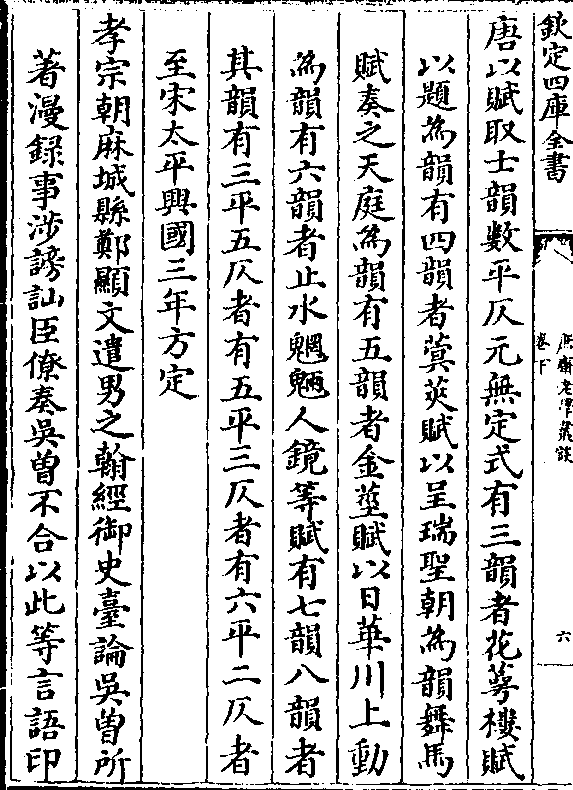 欽定四庫全書
庶齋老學叢談
卷下
六
唐以賦取士韻數平仄元無定式有三韻者花萼樓賦
以題為韻有四韻者蓂莢賦以呈瑞聖朝為韻舞馬
賦奏之天庭為韻有五韻者金莖賦以日華川上動
為韻有六韻者止水魍魎人鏡等賦有七韻八韻者
其韻有三平五仄者有五平三仄者有六平二仄者
至宋太平興國三年方定
孝宗朝麻城縣鄭顯文遣男之翰經御史臺論吳曽所
著漫録事涉謗訕臣僚奏吳曽不合以此等言語印